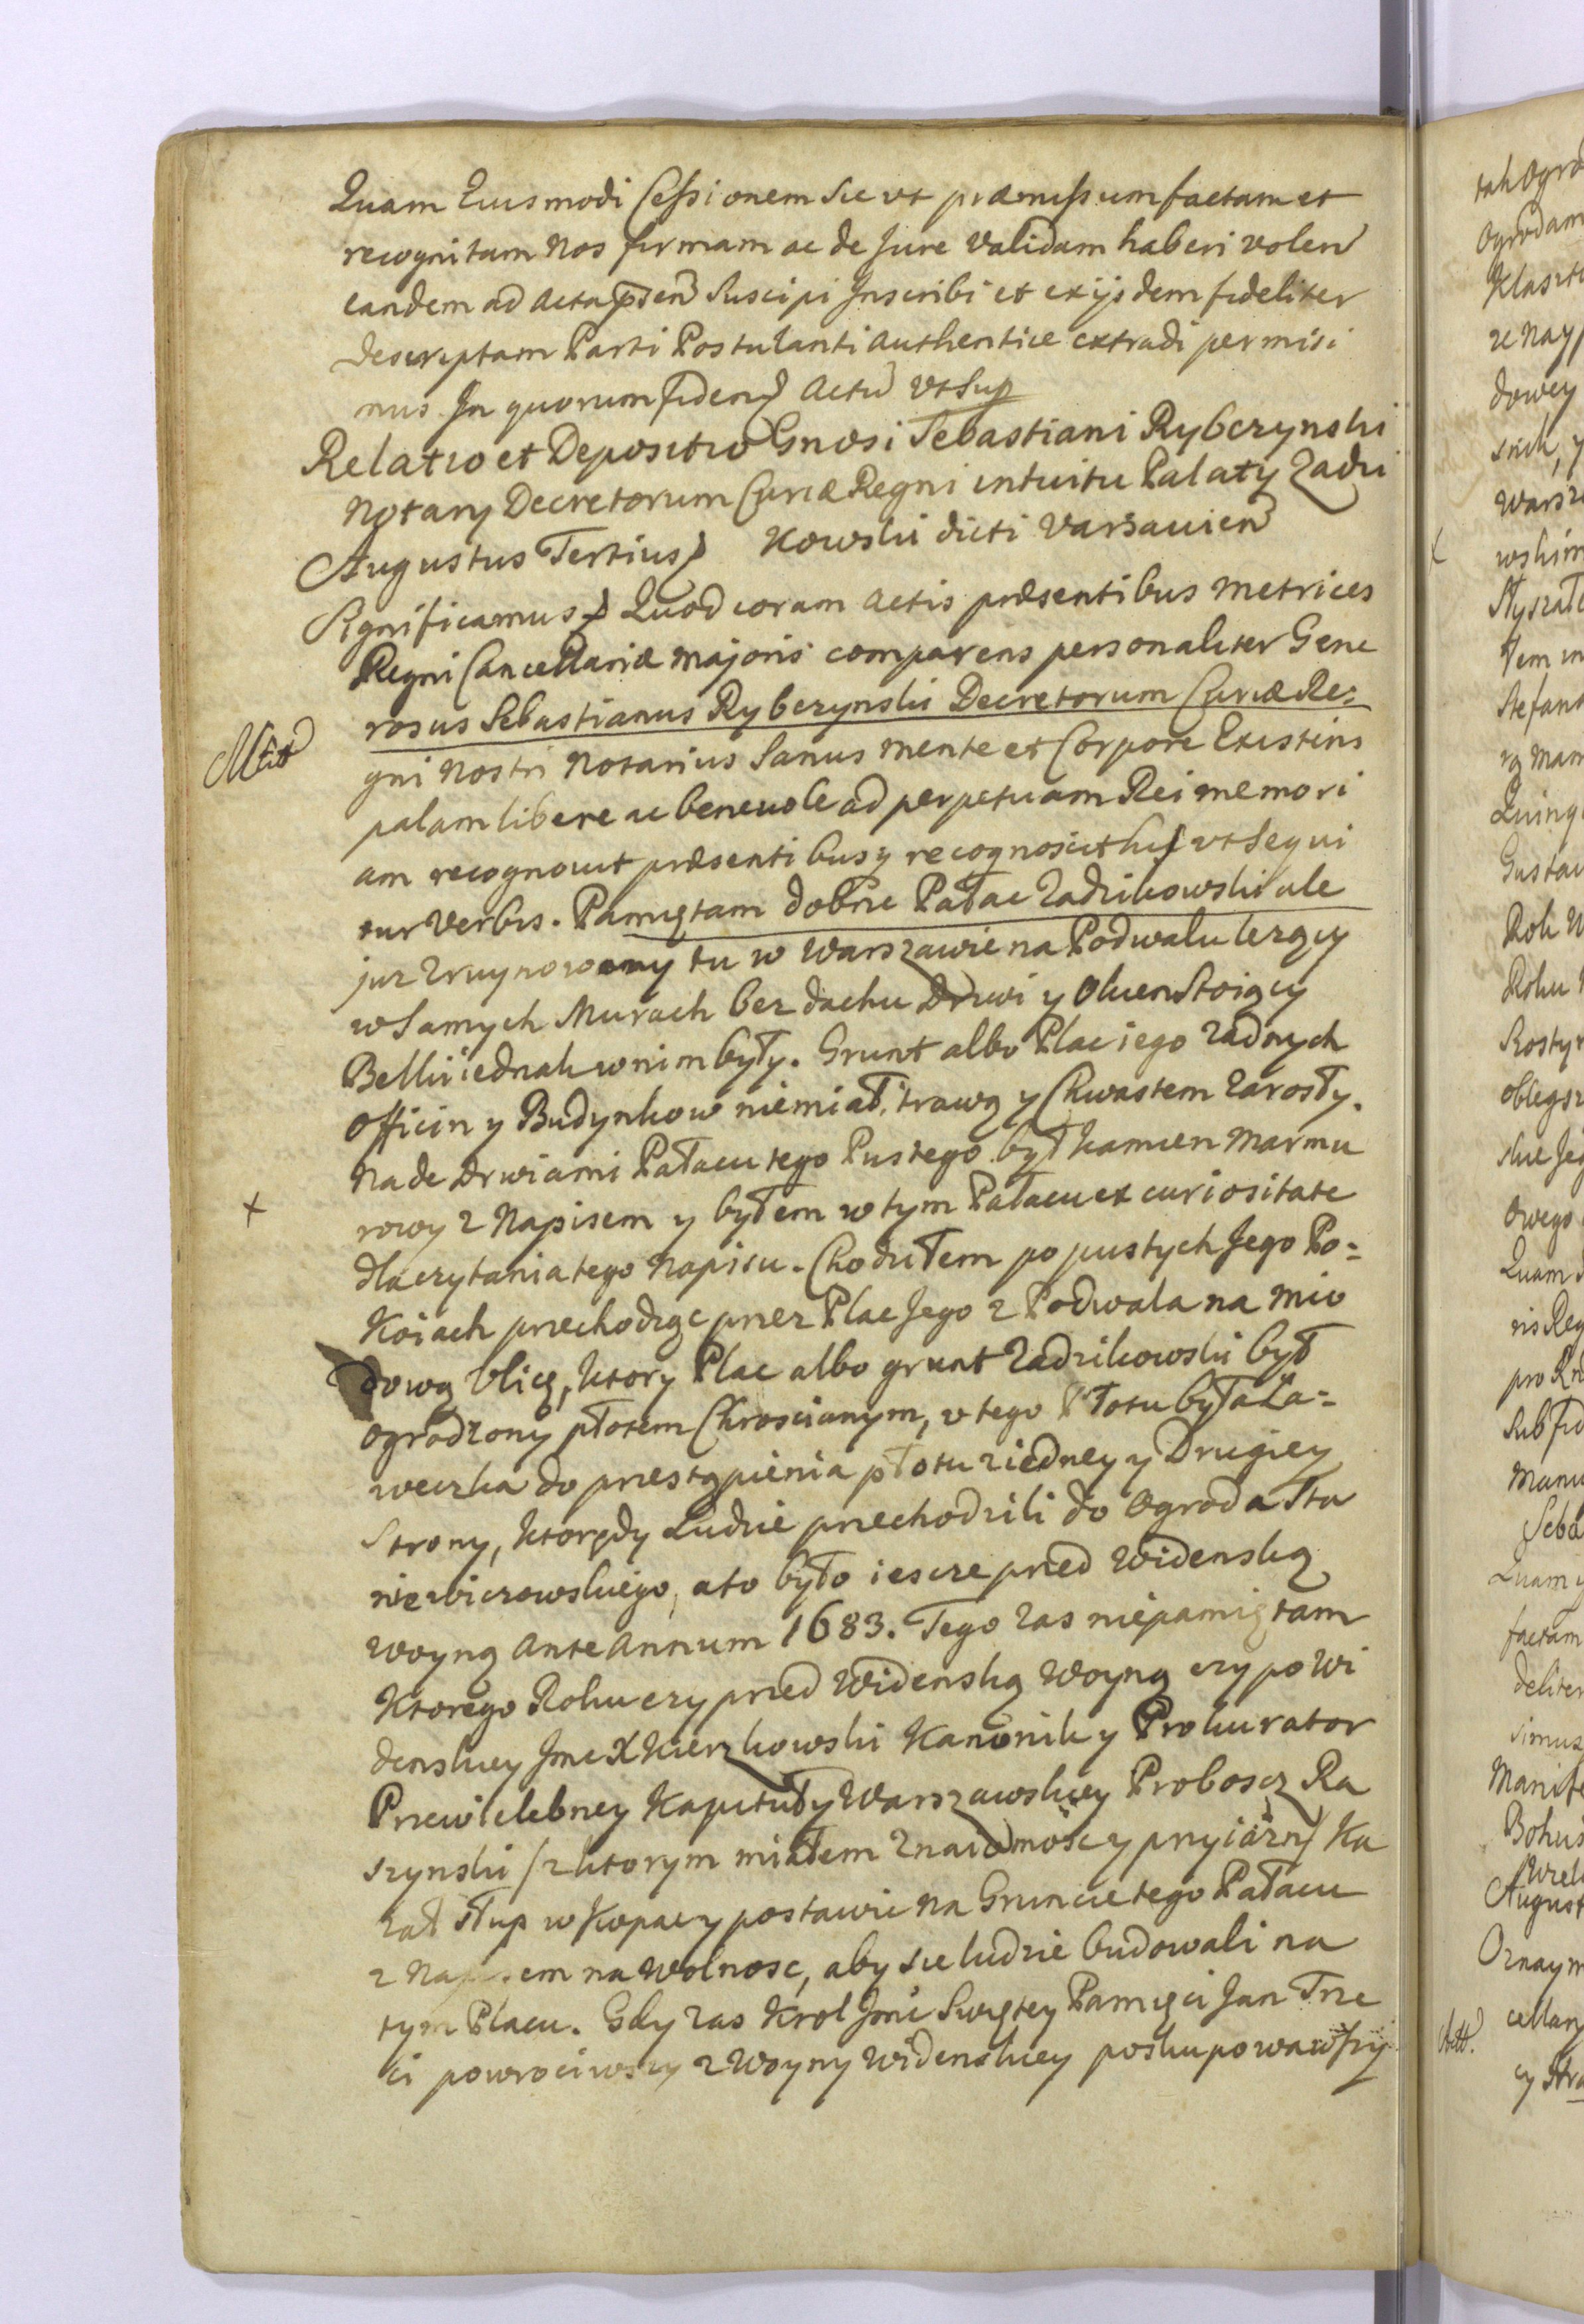 Quam Eiusmodi Cessionem Sic vt præmissum factam et
recognitam Nos firmam ac de Jure Validam haberi volen
eandem ad Acta psen Suscipi Inscribi et exijsdem fideliter
descriptam Parti Postulanti Authentice extradi permisi
mus. In quorum fidem Actu Vt Sup
Relatio et Depositio Gnosi Sebastiani Rybczynski
Notary Decretorum Curiæ Regni intuitu Palaty Zadzi
Augustus Tertius Kowski dicti Varsavien
Significamus Quod coram Actis præsentibus Metrices
Regni Cancellariæ Majoris comparens personaliter Gene
rosus Sebastianus Rybczynski Decretorum Curiæ Re=
gni Nostri Notarius Sanus Mente et Corpore Existens
palam libere ac benevole ad perpetuam Rei memori
am recognovit præsentibusq recognoscit his vt Sequi
tur Verbis. Pamiętam dobrze Pałac Zadzikowski ale
juz Zruynowany tu w Warszawie na Podwalu lezący
w Samych Murach bez dachu Drzwi y Okien Stoiący
Belki iednak w nim były. Grunt albo Plac iego zadnych
Officin y Budynkow niemiał, trawą y Chwastem Zarosły.
Nade Drzwiami Pałacu tego Pustego był kamien Marmu
rowy z Napisem y byłem w tym Pałacu ex curiositate
dla czytania tego Napisu. Chodziłem po pustych Jego Po=
Koiach przechodząc przez Plac Jego z Podwala na Mio
dową Ulicę, ktory Plac albo grunt Zadzikowski był
Ogrodzony płotem Chroscianym, v tego Płotu była Ła=
weczka do przestąpienia płotu z iedney y Drugiey
Strony, ktorędy Ludzie przechodzili do Ogroda Sta
niewiczowskiego, a to było iescze przed Widenską
Woyną Ante Annum 1683. Tego Zas niepamiętam
Ktorego Roku czy przed Widenską Woyną czy po Wi
denskiey Jmc X Kierzkowski Kanonik y Prokurator
Przewielebney Kapituły Warszawskiey Proboscz Ra
szynski (z ktorym miałem Znaiomosc y przyiazn) Ka
zał słup w Kopacz postawic na Gruncie tego Pałacu
z Napisem na Wolnosc, aby sie ludzie budowali na
tym Placu. Gdy Zas Krol Jmc Swiętey Pamięci Jan Trze
ci powrociwszy z Woyny Widenskiey poskupowawszy